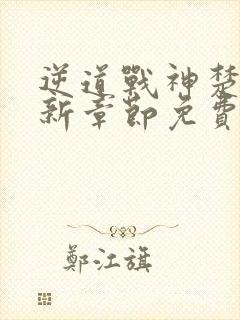 逆道戰神楚
新章節免費
鄭江旗